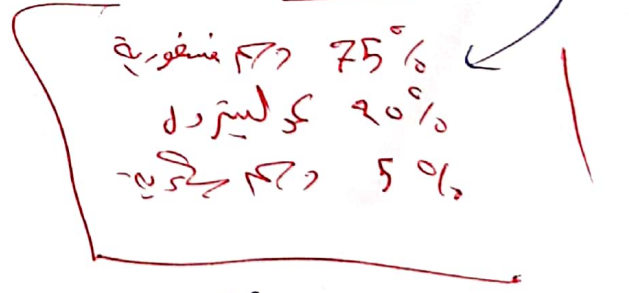 75% دسم فسفورية
20% كوليسترول
5% دسم سكرية